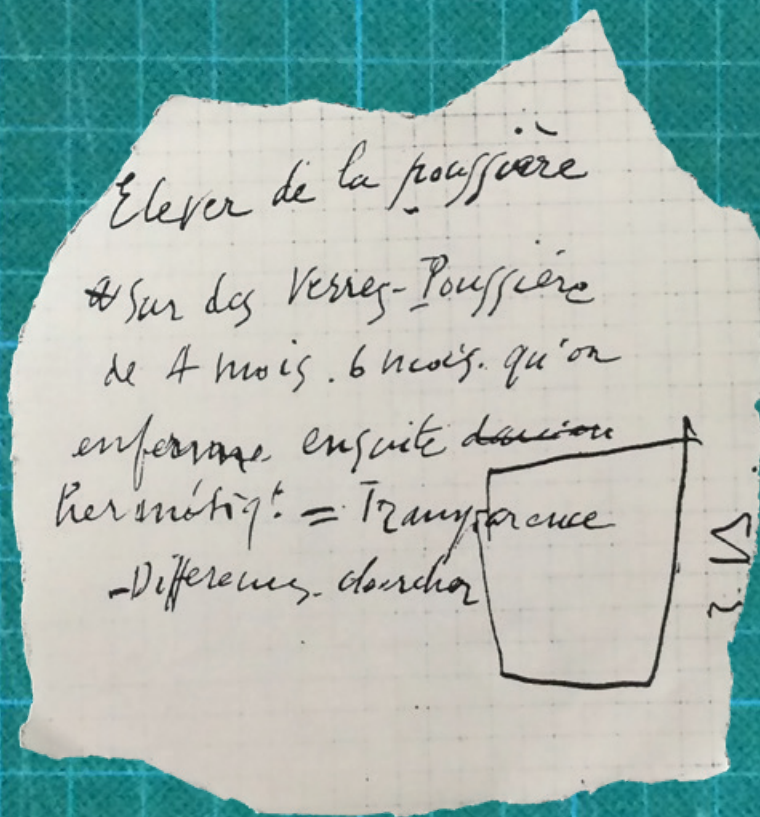 Elever de la poussière
Sur des Verres-Poussière
de 4 mois. 6 mois. qu'on
enferme ensuite
hermétiqt. = Transparence
-Differences. chercher